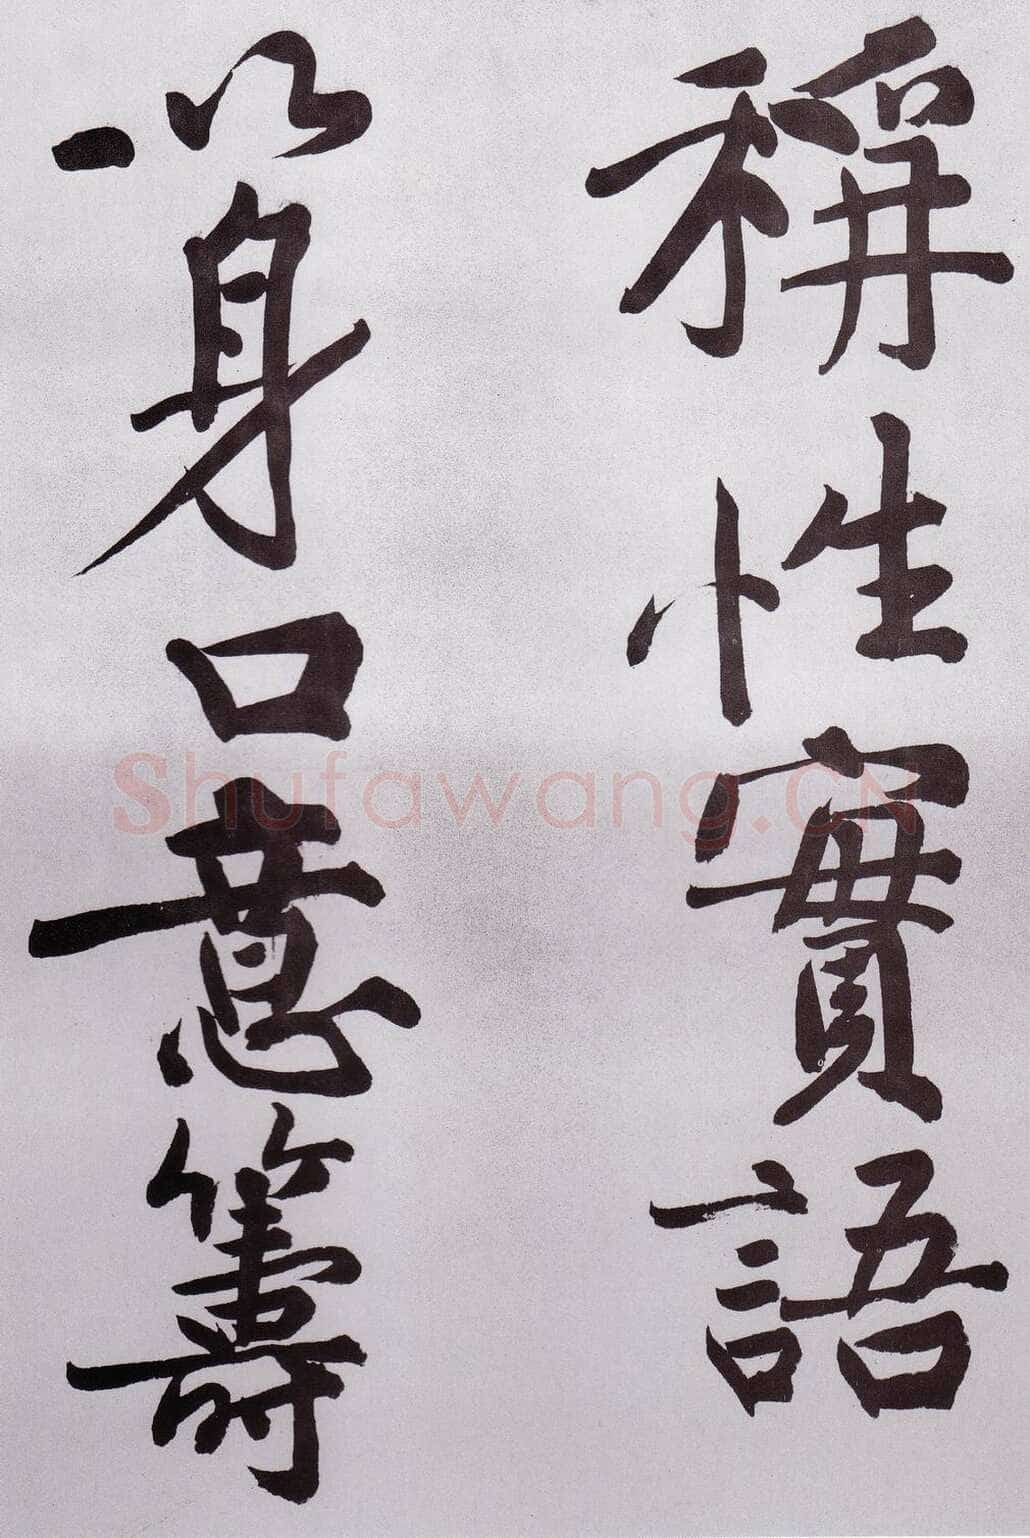 稱性實語
以身口意籌
Shufawang.CN